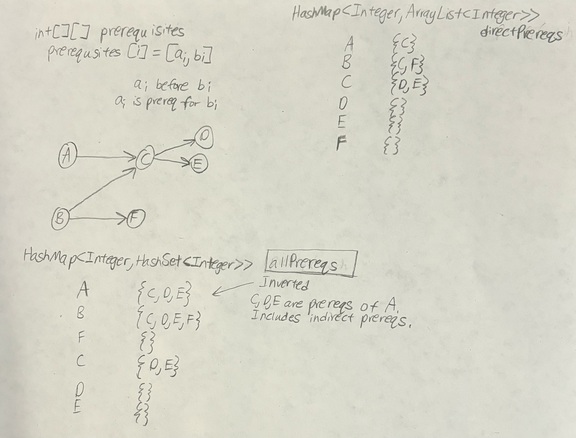 int[][] prerequisites
prerequsites [i] = [ai, bi]
ai before bi
ai is prereq for bi
A
B
C
D
E
F
HashMap<Integer, ArrayList<Integer>>
directPrereqs
A {C}
B {C,F}
C {D,E}
D {}
E {}
F {}
HashMap<Integer, HashSet<Integer>> allPrereqs
A {C,D,E}
B {C,D,E,F}
F {}
C {D,E}
D {}
E {}
Inverted
C,D,E are prereqs of A.
Includes indirect prereqs.